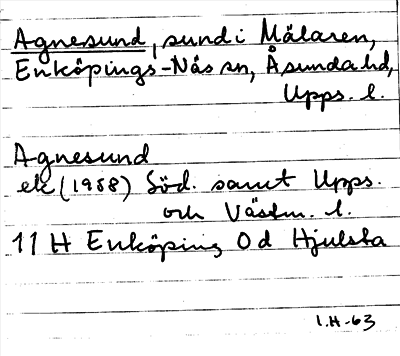 Agnesund, sund i Mälaren,
Enköpings-Näs sn, Åsunda hd,
Upps. l.
Agnesund
ek (1988) Söd. samt Upps.
och Västm. l.
11 H Enköping 0 d Hjulsta
I.H-63